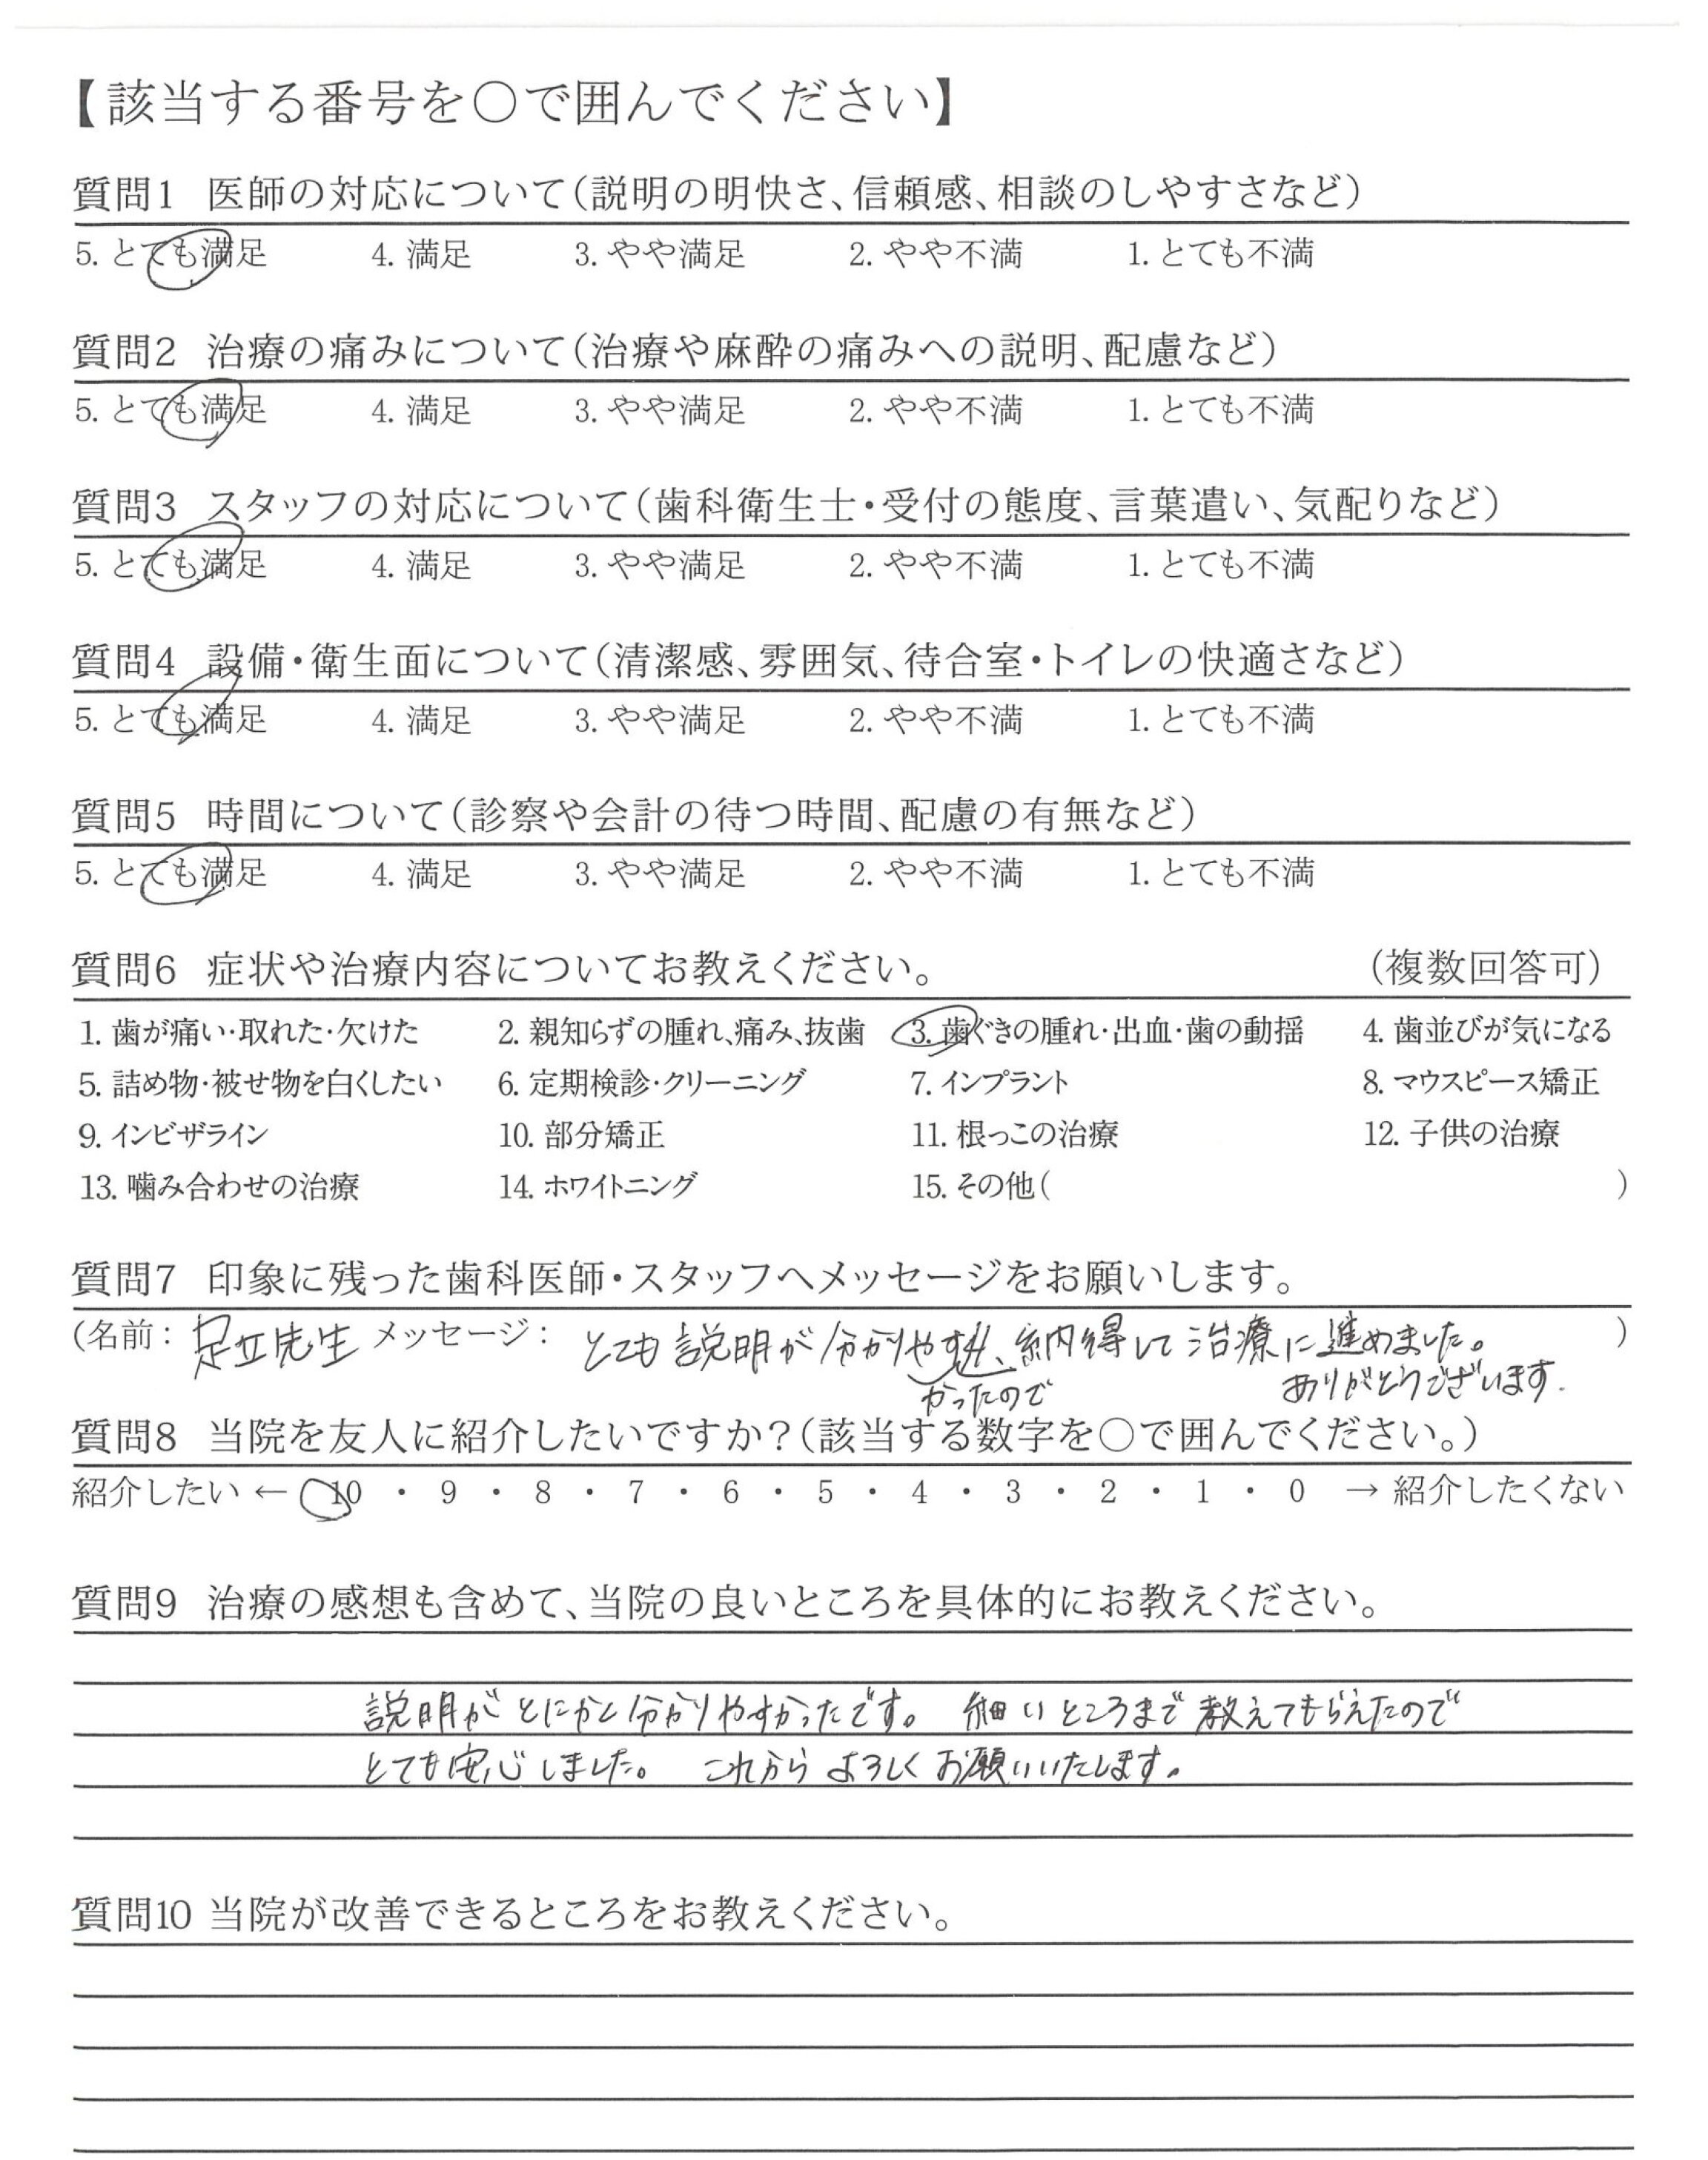 【該当する番号を○で囲んでください】
質問1 医師の対応について(説明の明快さ、信頼感、相談のしやすさなど)
5. とても満足 4. 満足 3. やや満足 2. やや不満 1. とても不満
質問2 治療の痛みについて(治療や麻酔の痛みへの説明、配慮など)
5. とても満足 4. 満足 3. やや満足 2. やや不満 1. とても不満
質問3 スタッフの対応について(歯科衛生士・受付の態度、言葉遣い、気配りなど)
5. とても満足 4. 満足 3. やや満足 2. やや不満 1. とても不満
質問4 設備・衛生面について(清潔感、雰囲気、待合室・トイレの快適さなど)
5. とても満足 4. 満足 3. やや満足 2. やや不満 1. とても不満
質問5 時間について(診察や会計の待つ時間、配慮の有無など)
5. とても満足 4. 満足 3. やや満足 2. やや不満 1. とても不満
質問6 症状や治療内容についてお教えください。 (複数回答可)
1. 歯が痛い・取れた・欠けた 2. 親知らずの腫れ、痛み、抜歯 3. 歯ぐきの腫れ・出血・歯の動揺 4. 歯並びが気になる
5. 詰め物・被せ物を白くしたい 6. 定期検診・クリーニング 7. インプラント 8. マウスピース矯正
9. インビザライン 10. 部分矯正 11. 根っこの治療 12. 子供の治療
13. 噛み合わせの治療 14. ホワイトニング 15. その他( )
質問7 印象に残った歯科医師・スタッフへメッセージをお願いします。
(名前: 足立先生 メッセージ: とても説明が分かりやす、納得して治療に進めました。 )
かったので ありがとうございます.
質問8 当院を友人に紹介したいですか?(該当する数字を○で囲んでください。)
紹介したい ← 10 ・ 9 ・ 8 ・ 7 ・ 6 ・ 5 ・ 4 ・ 3 ・ 2 ・ 1 ・ 0 → 紹介したくない
質問9 治療の感想も含めて、当院の良いところを具体的にお教えください。
説明がとにかく分かりやすかったです。 細いところまで教えてもらえたので
とても安心しました。 これからよろしくお願いいたします。
質問10 当院が改善できるところをお教えください。